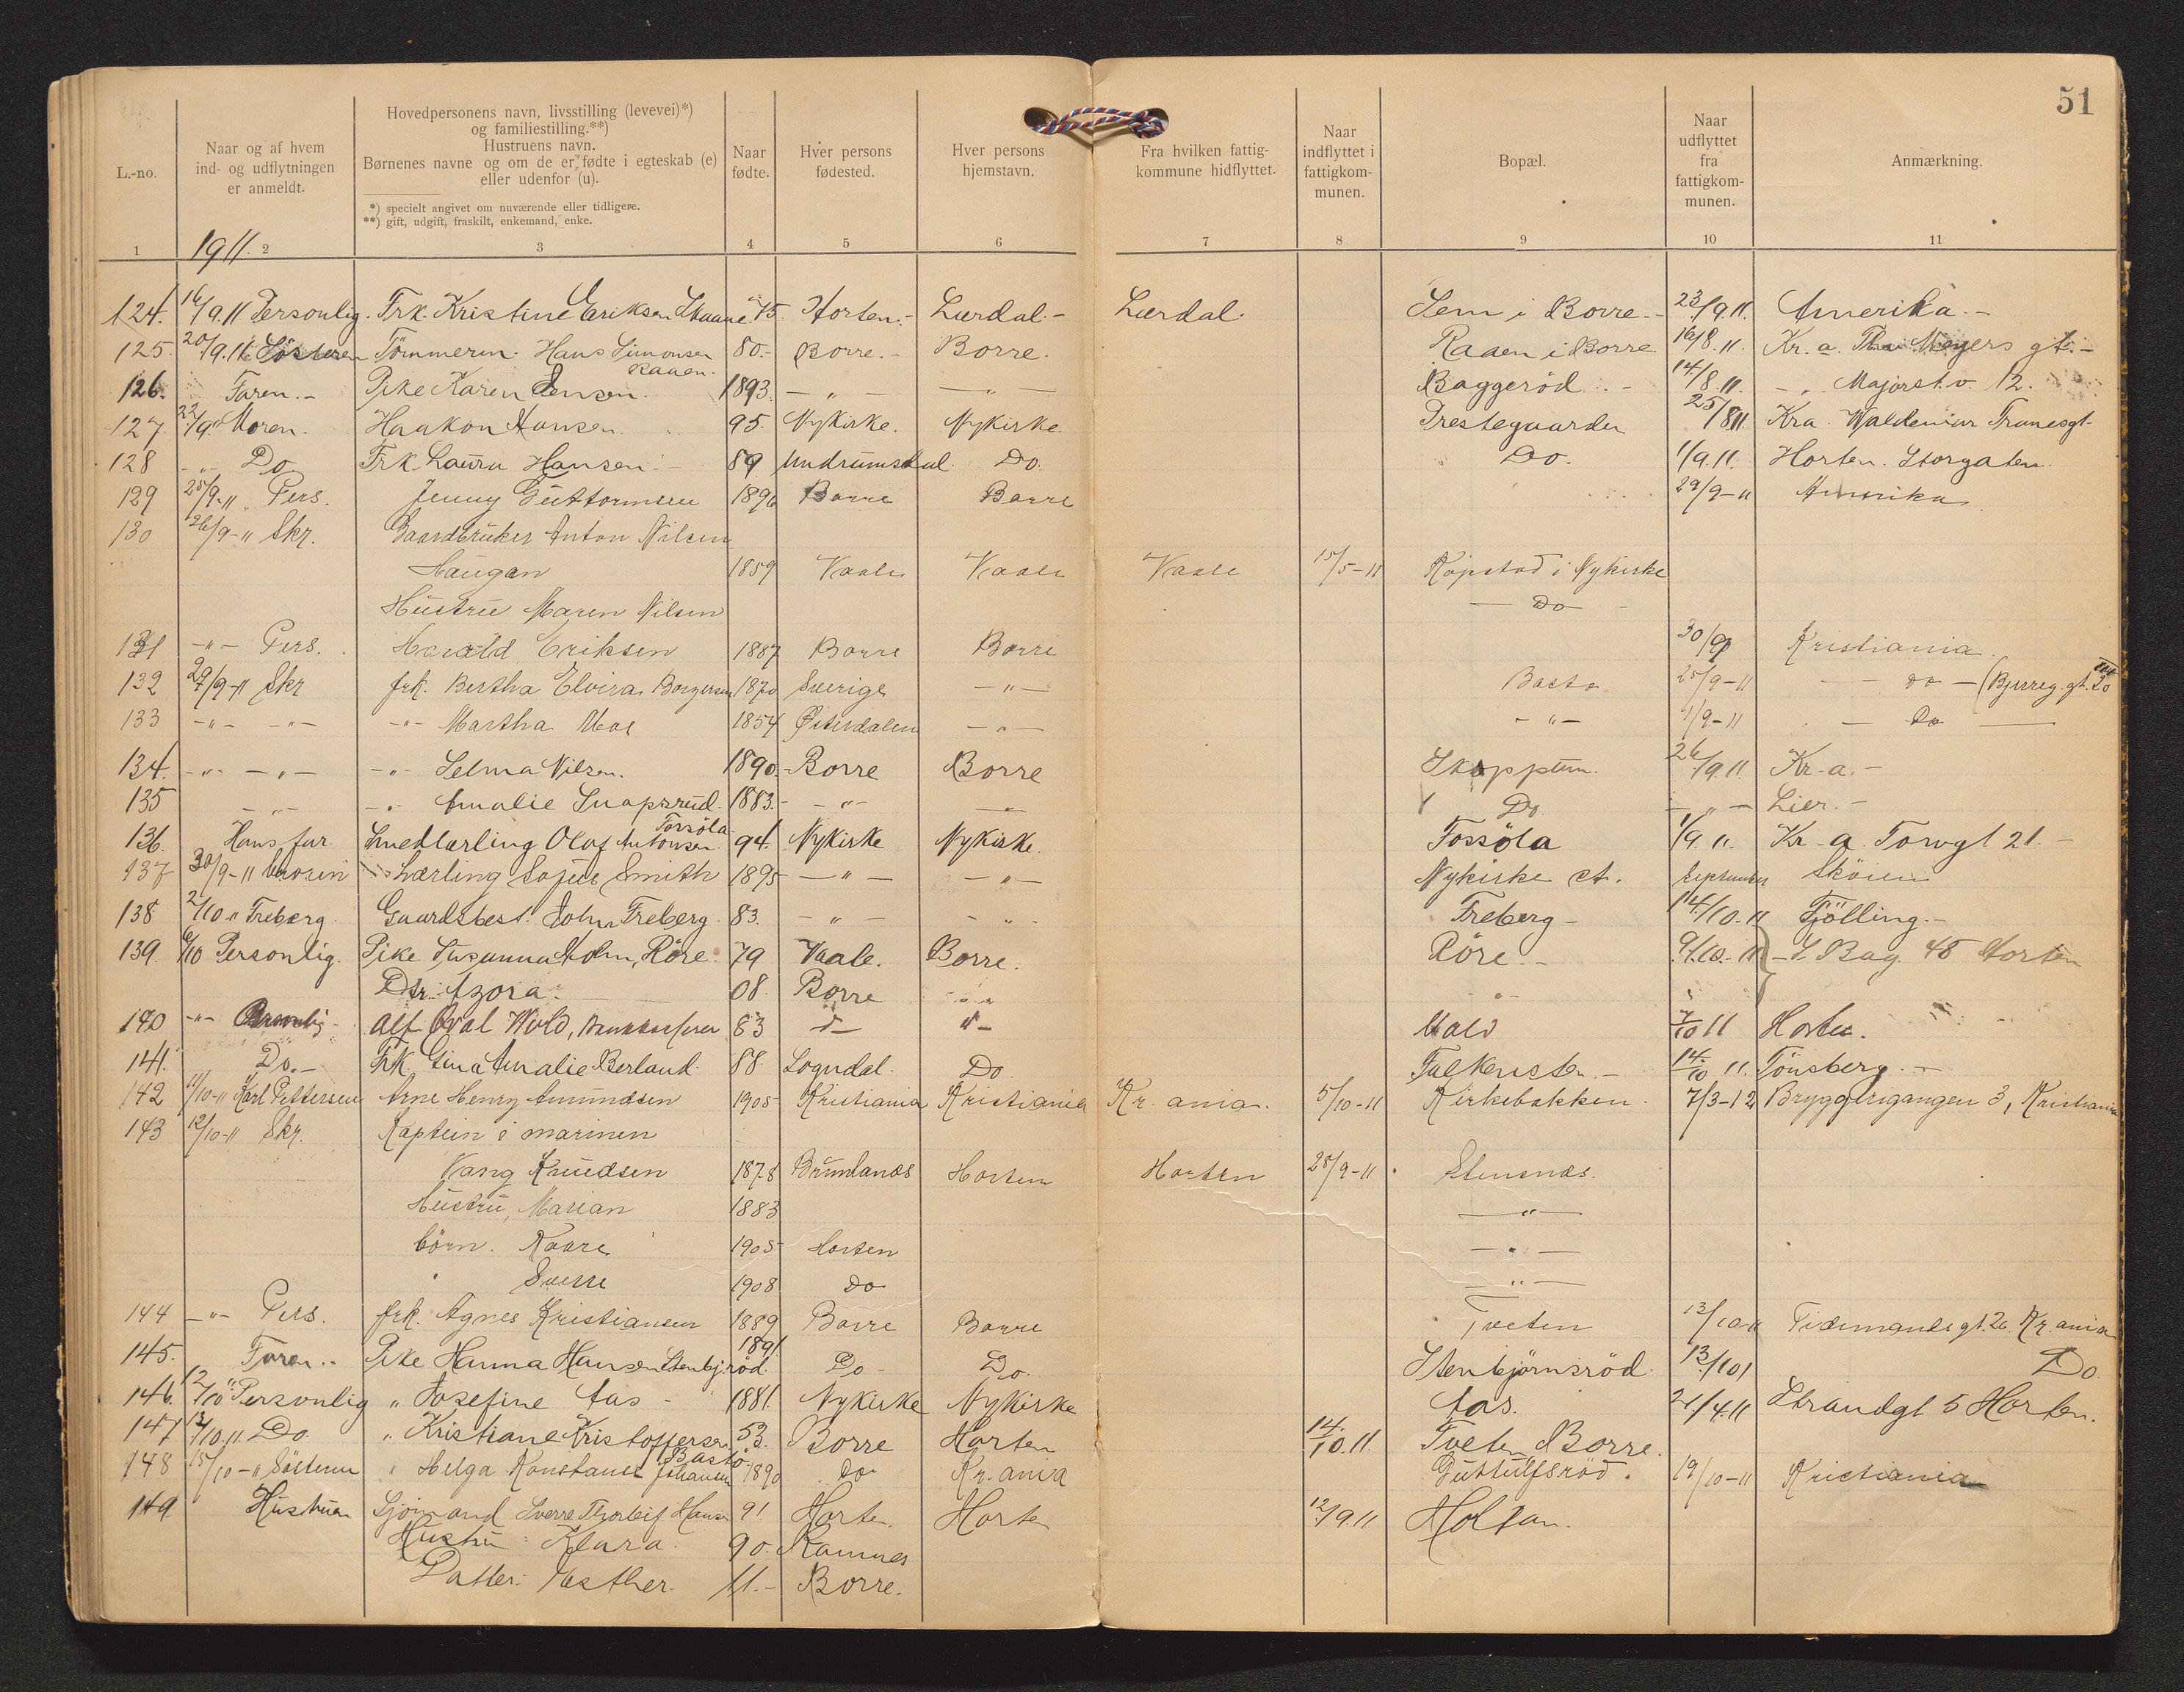 51
L.-no.
Naar og af hvem
ind- og udflytningen
er anmeldt.
Hovedpersonens navn, livsstilling (levevei)*)
og familiestilling.**)
Hustruens navn.
Børnenes navne og om de er fødte i egteskab (e)
eller udenfor (u).
*) specielt angivet om nuværende eller tidligere.
**) gift, ugift, fraskilt, enkemand, enke.
Naar
fødte.
Hver persons
fødested.
Hver persons
hjemstavn.
Fra hvilken fattig-
kommune hidflyttet.
Naar
indflyttet i
fattigkom-
munen.
Bopæl.
Naar
udflyttet
fra
fattigkom-
munen.
Anmærkning.
1 2 3 4 5 6 7 8 9 10 11
1911.
124. 16/9.11 Personlig. Frk. Kristine Eriksen 75. Horten.- Lærdal.- Lærdal. Sem i Borre.- 23/9.11. Amerika.-
125. 20/9.11. Søsteren Tømmerm. Hans Simonsen 80.- Borre.- Borre. Raaen i Borre 16/8.11. Kr.a. Meyers gt.-
Raaen.
126. Faren.- Pike Karen Jensen. 1893. - " - - " - Baggerød.- 14/8.11. - " Majorst.v. 12.
127. 22/9 Moren. Haakon Hansen. 95. Nykirke. Nykirke. Prestegaarden 25/811. Kra. Waldemar Tranesgt.
128 - " - Do Frk. Laura Hansen.- 89 Undrumsdal. Do. Do. 1/9.11. Horten. Storgaten.
129 25/9-11 Pers. Jenny Guttormsen 1896 Borre Borre 29/9-11 Amerika
130 26/9-11 Skr. Gaardbruker Anton Nilsen
Haugan 1859 Vaale Vaale Vaale 15/5-11 Kopstad i Nykirke
Hustru Maren Nilsen - Do -
131 - " - Pers. Harald Eriksen 1887 Borre Borre 30/9 Kristiania.
132 29/9-11 Skr frk. Bertha Elvira Borgersen 1870 Sverige - " - Basto 25/9-11 - do - (Bjerreg. gt. 20
133 - " - - " - - " - Martha Moe 1854 Østerdalen - " - - " - 1/9-11 - Do -
134. - " - - " - - " - Selma Nilsen. 1890.- Borre Borre Skoppum. 26/9.11. Kr.a.-
135 - " - - " - Amalie Snapsrud. 1883.- - " - - " - Do. - " - Lier.-
136. Hans far Smedlærling Olaf Antonsen Fossøla 94. Nykirke Nykirke. Fossøla 1/9.11. Kr.a. Torvgt 21.-
137 30/9-11 Lærling Sofus Smith 1895 - " - - " - Nykirke st. September Skøien
138 2/10.11 Freberg. Gaardsbest. John Freberg. 83. - " - - " - Freberg- 14/10.11 Fjölling.-
139. 6/10 Personlig. Pike Susanna Holm, Røre. 79 Vaale. Borre. Røre.- 9/10.11 48 Horten
Dtr. Azora. 08. Borre - " - - " -
140 - " - Personlig Alf Oval Wold, 83 d- d- Vold 7/10 11 Horten.
141. Do.- Frk. Gina Amalie Berland. 88. Sogndal. Do Falkensten.- 14/10 11. Tönsberg.-
142 11/10-11 Karl Pettersen Arne Henry Amundsen 1905 Kristiania Kristiania Kr.ania. 5/10-11 Kirkebakken. 7/3-12 Bryggerigangen 3, Kristiania
143 12/10-11 Skr. Kaptein i marinen
Vang Knudsen 1878 Brunlanæs Horten Horten 28/9-11 Stensnæs.
Hustru, Marian 1883 - " -
börn. Kaare 1905 Horten - " -
" Sverre 1908 Do - " -
144 - " - Pers. frk. Agnes Kristiansen 1889 Borre Borre Tveten 13/10-11 Tidemandsgt. 26. Kr.ania
145. Faren.- Pike Hanna Hansen Stenbj.rød. 1891 Do- Do. Stenbjørnsrød. 13/101 Do.
146. 12/10 " Personlig " Josefine Aas - 1881. Nykirke Nykirke Aas. 21/4.11 Strandgt 5 Horten.
147 13/10.11. Do. " Kristiane Kristoffersen 53. Borre Horten 14/10.11. Tveten Borre.
Bastø
148 15/10-11 Søsteren " Helga Konstanse Johansen 1890 Do Kr.ania Guttulfsrød. 19/10-11 Kristiania
149 Hustruen Sjömand Sverre Thorleif Hansen 91. Horten. Horten 12/9.11. Holtan.
Hustru Klara. 90. Ramnes
Datter: Esther. 11.- Borre.